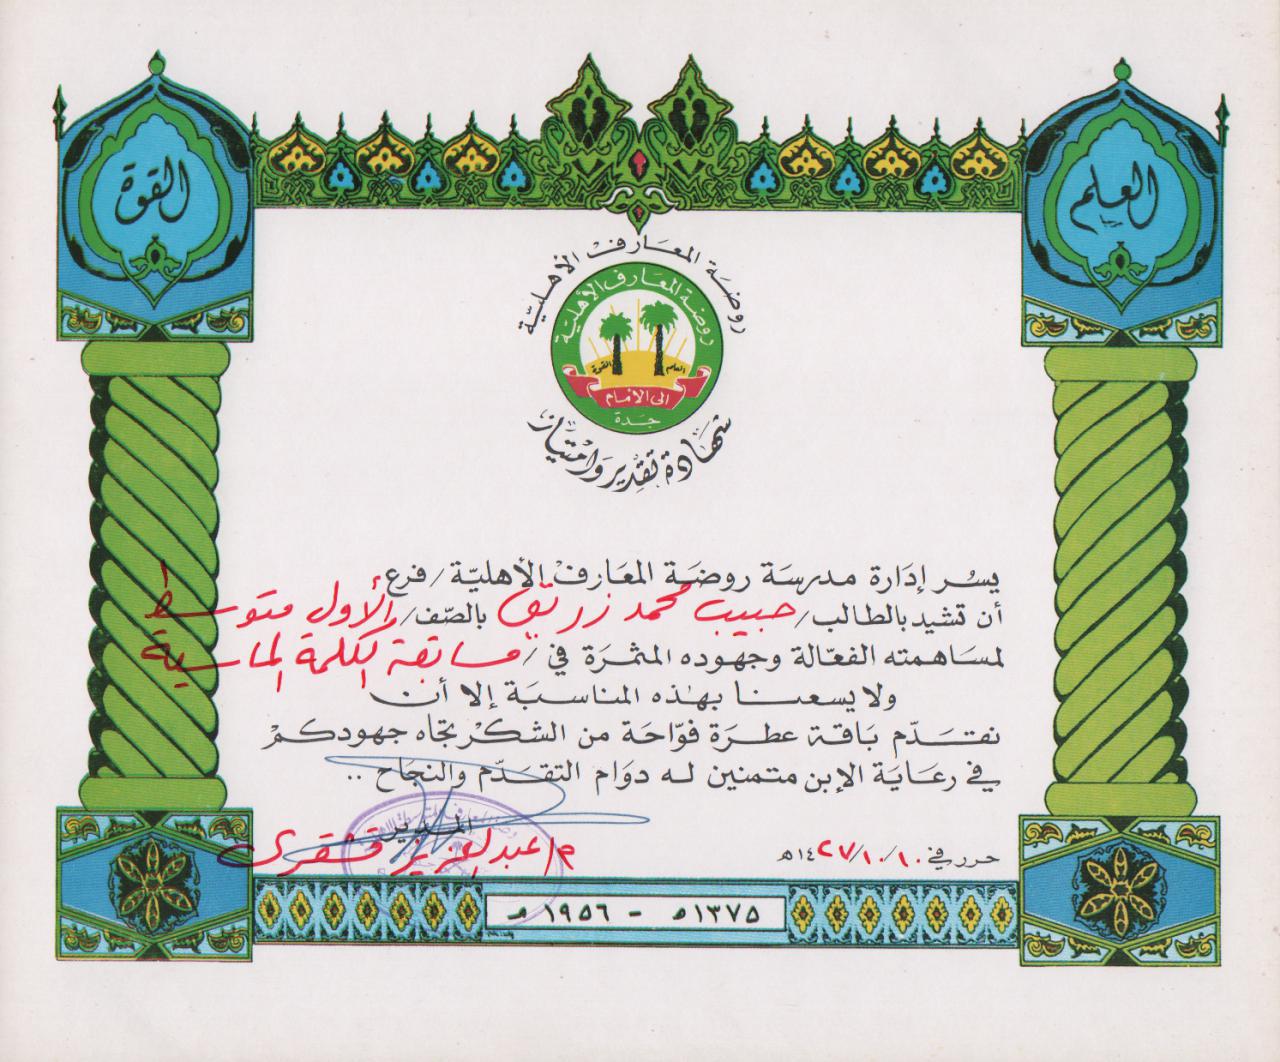 العلم
القوة
روضة المعارف الأهلية
روضة المعارف الأهلية
العلم
القوة
إلى الأمام
جدة
شهادة تقدير وامتياز
يسر إدارة مدرسة روضة المعارف الأهلية / فرع
أن تشيد بالطالب / حبيب محمد زريق بالصف / الأول متوسط
لمساهمته الفعالة وجهوده المثمرة في / مسابقة الكلمة الماسية
ولا يسعنا بهذه المناسبة إلا أن
نقدم باقة عطرة فواحة من الشكر تجاه جهودكم
في رعاية الإبن متمنين له دوام التقدم والنجاح ..
المدير
م / عبد العزيز قشقري
حرر في ١٠ / ١٠ / ١٤٢٧هـ
١٣٧٥هـ - ١٩٥٦ م